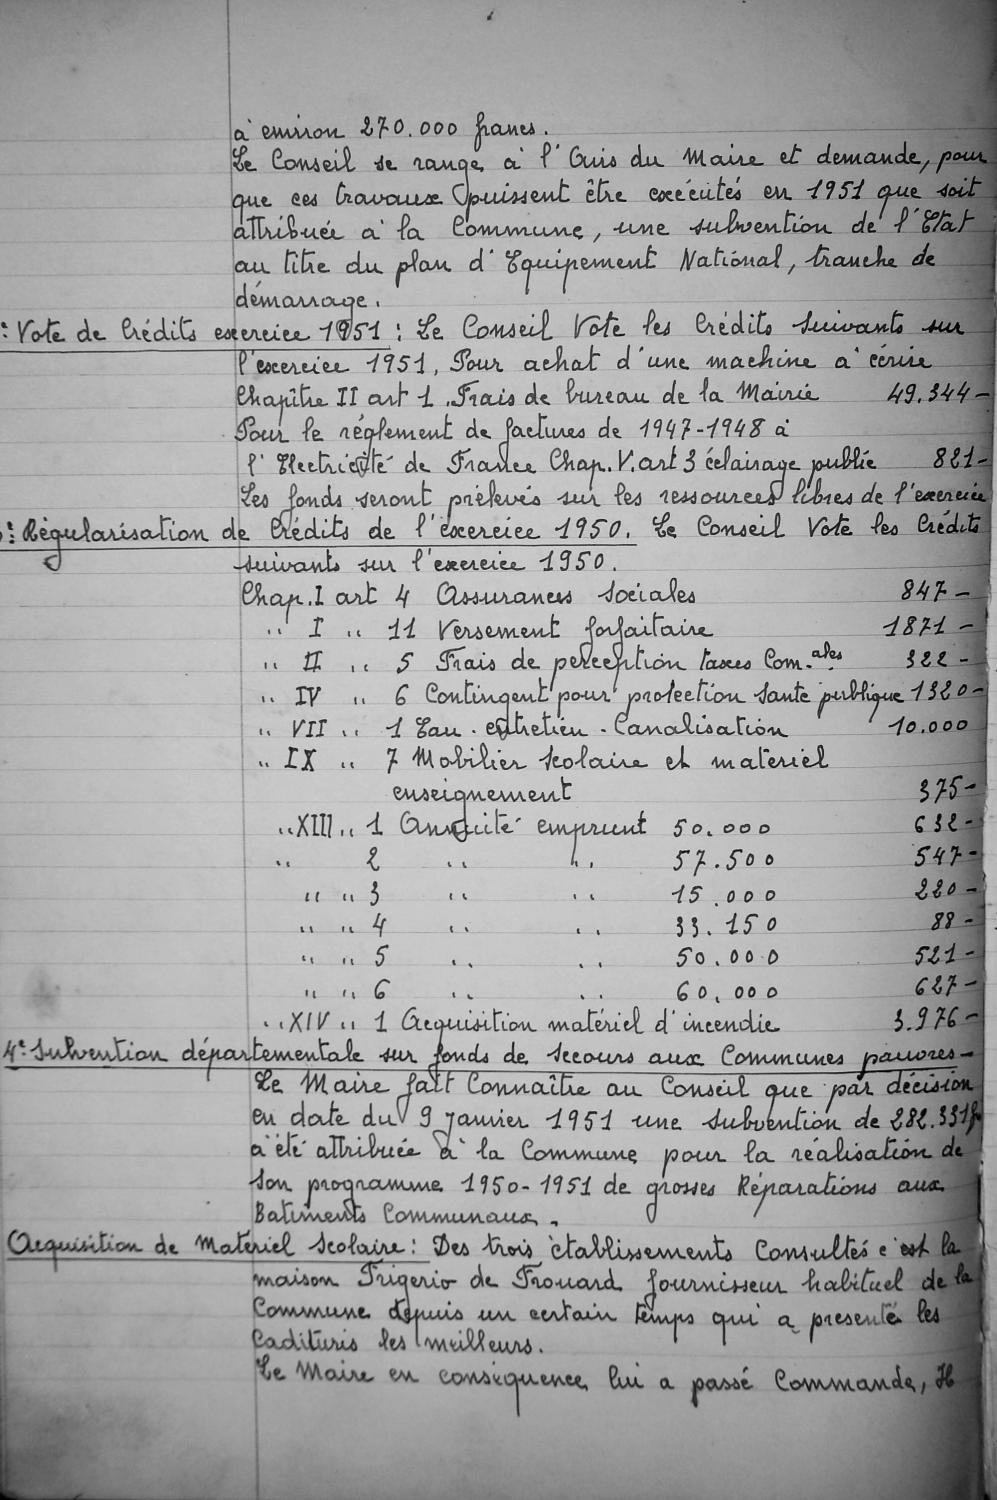 à environ 270.000 francs.
Le Conseil se range à l'Avis du Maire et demande, pour
que ces travaux puissent être exécutés en 1951 que soit
attribuée à la Commune, une subvention de l'Etat
au titre du plan d'Equipement National, tranche de
démarrage.
Vote de Crédits exercice 1951 : Le Conseil Vote les Crédits Suivants sur
l'exercice 1951, Pour achat d'une machine à écrire
Chapître II art 1. Frais de bureau de la Mairie 49.344 -
Pour le réglement de factures de 1947-1948 à
l'Electricité de France Chap. V. art 3 éclairage public 821 -
Les fonds seront prélevés sur les ressources libres de l'exercice
Régularisation de Crédits de l'exercice 1950. Le Conseil Vote les Crédits
suivants sur l'exercice 1950.
Chap. I art 4 Assurances Sociales 847 -
" I " 11 Versement forfaitaire 1871 -
" II " 5 Frais de perception taxes Com.ales 322 -
" IV " 6 Contingent pour protection Santé publique 1320 -
" VII " 1 Eau - entretien - Canalisation 10.000
" IX " 7 Mobilier Scolaire et matériel
enseignement 375 -
" XIII " 1 Annuité emprunt 50.000 632 -
" 2 " " 57.500 547 -
" " 3 " " 15.000 220 -
" " 4 " " 33.150 88 -
" " 5 " " 50.000 521 -
" " 6 " " 60.000 627 -
" XIV " 1 Acquisition matériel d'incendie 3.976 -
4°: Subvention départementale sur fonds de Secours aux Communes pauvres -
Le Maire fait Connaître au Conseil que par décision
en date du 9 Janvier 1951 une Subvention de 282.331f
a été attribuée à la Commune pour la réalisation de
Son programme 1950-1951 de grosses Réparations aux
Batiments Communaux.
Acquisition de Matériel Scolaire : Des trois établissements Consultés c'est la
maison Frigerio de Frouard fournisseur habituel de la
Commune depuis un certain temps qui a presenté les
les meilleurs.
Le Maire en conséquence lui a passé Commande,